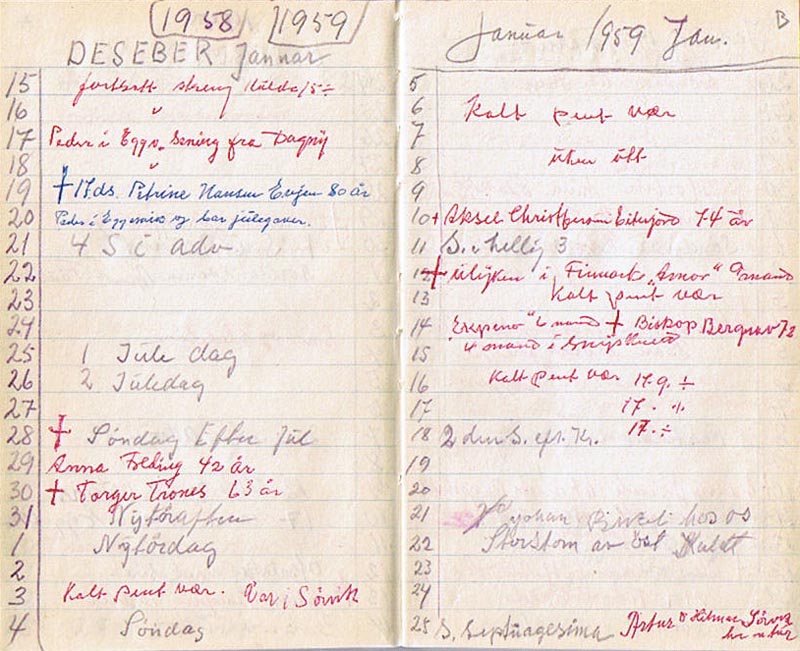 1958 1959
DESEBER Januar
15 fortsatt streng kulda 15 ÷
16 "
17 Peder i Eggv. Sening fra Dagny
18 "
19 † 17 ds. Petrine Hansen Evjen 80 år
20 Peder i og bar julegaver.
21 4 S i adv
22
23
24
25 1 Jule dag
26 2 Juledag
27
28 † Søndag Efter Jul
29 Anna Foldvig 42 år
30 † Torger Trones 63 år
31 Nytåraften
1 Nytårdag
2
3 Kalt pent vær. Var i Sørvik
4 Søndag
Januar 1959 Jan. B
5
6 Kalt pent vær
7
8 uten
9
10 † Aksel Christfersen Eiterjord 74 år
11 S. e hellig 3
12 † ulyken i Finmark "Amor" 9 mand
13 Kalt pent vær
14 6 mand † Biskop Bergrav 7
15 4 mand i
16 Kalt pent vær 17.9. ÷
17 17. ÷
18 2 den S. eft. Kr. 17. ÷
19
20
21 johan hos os
22 Storstom av øst Kaldt
23
24
25 S. Septuagesima Artur o Hilmar Sørvik
her